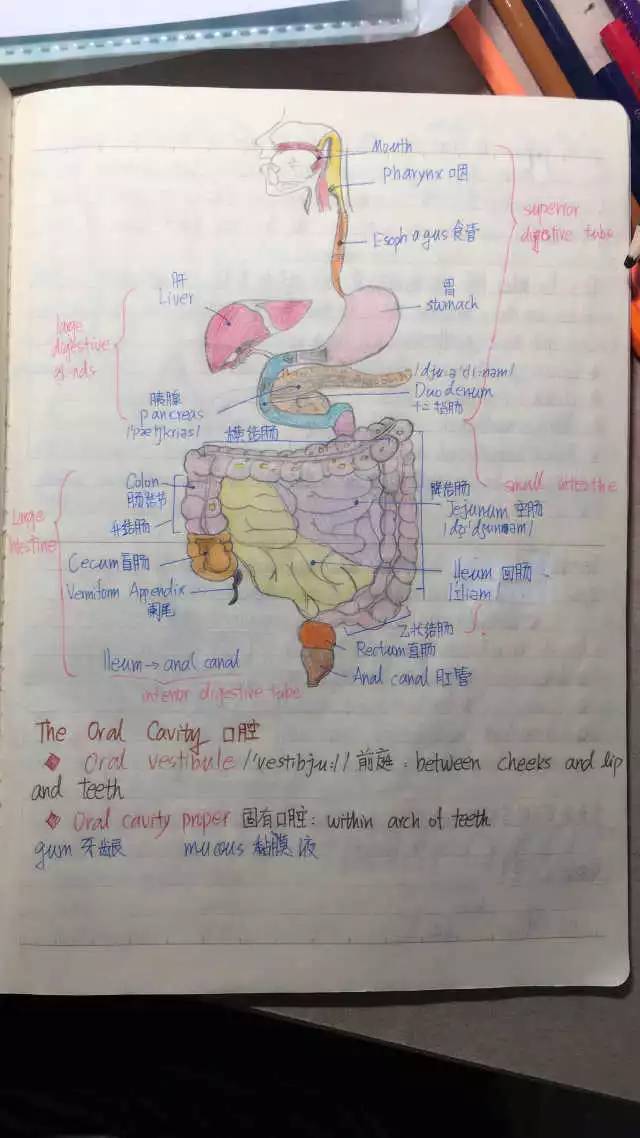 Mouth
pharynx 咽
superior
digestive tube
Esophagus 食管
肝
Liver
胃
stumach
large
digestive
胰腺
pancreas
/'pæŋkriəs/
Duodenum
十二指肠
横结肠
Colon
肠结节
升结肠
降结肠
small intestine
Jejunum 空肠
Large
intestine
Cecum 盲肠
Vermiform Appendix
阑尾
Ileum 回肠
乙状结肠
Rectum 直肠
Anal canal 肛管
Ileum → anal canal
inferior digestive tube
The Oral Cavity 口腔
◆ Oral vestibule /'vestibju:l/ 前庭: between cheeks and lip
and teeth
◆ Oral cavity proper 固有口腔: within arch of teeth
gum 牙龈 mucous 黏膜液